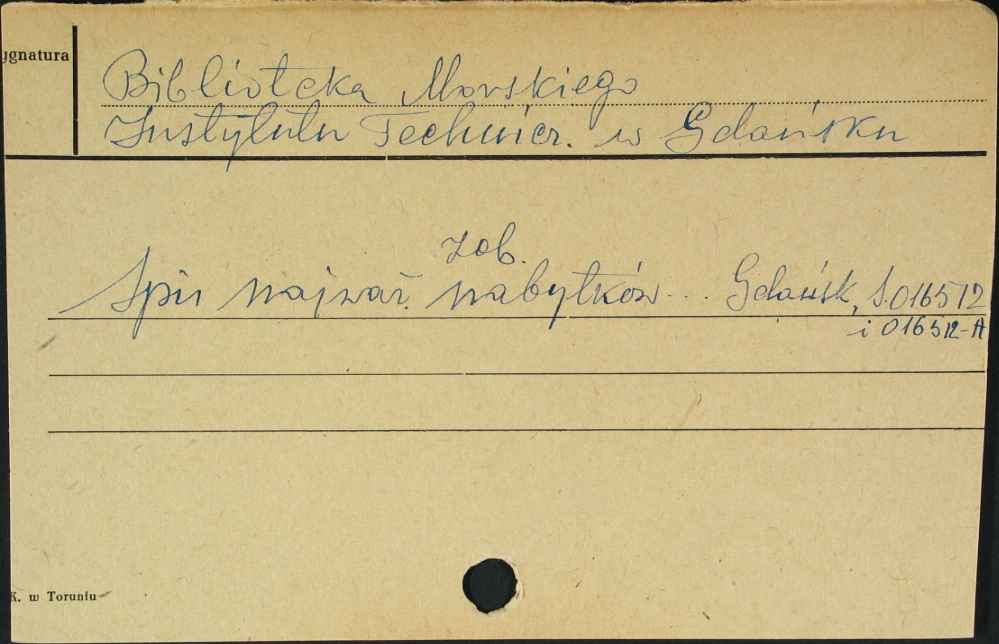 ygnatura
Biblioteka Morskiego
Instytutu Technicz. w Gdańsku
zob.
Spis najważ. nabytków... Gdańsk, S.016512
i 016512-A
K. w Toruniu